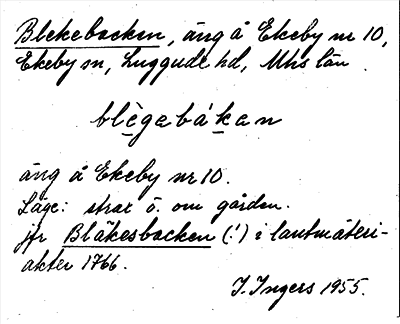 Blekebacken, äng å Ekeby nr 10,
Ekeby sn, Luggude hd, Mhs län
blègabákan
äng å Ekeby nr 10.
Läge: strax ö. om gården.
jfr Bläkesbacken (!) i lantmäteri-
akter 1766.
I. Ingers 1955.